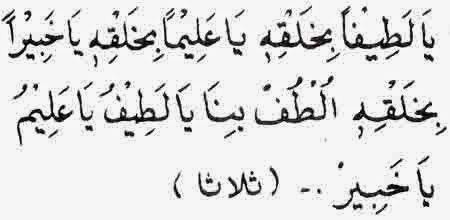 يَا لَطِيْفاً بِخَلْقِهٖ يَا عَلِيْماً بِخَلْقِهٖ يَا خَبِيْرًا
بِخَلْقِهٖ اُلْطُفْ بِنَا يَا لَطِيْفُ يَا عَلِيْمُ
يَا خَبِيرْ .. (ثلاثا)